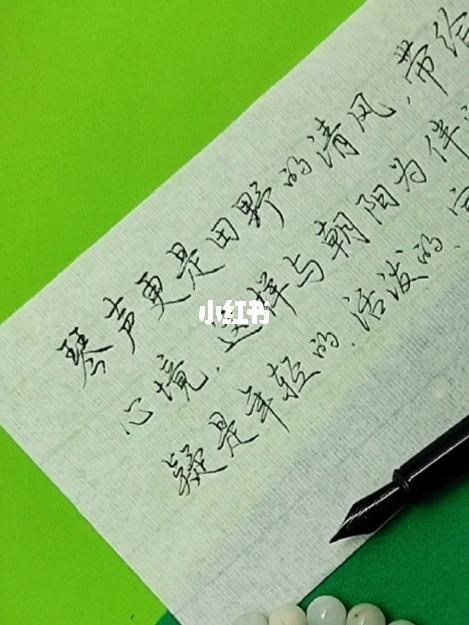 琴声更是田野的清风,带给
心境,这样与朝阳为伴
疑是年轻的、活泼的、
小红书